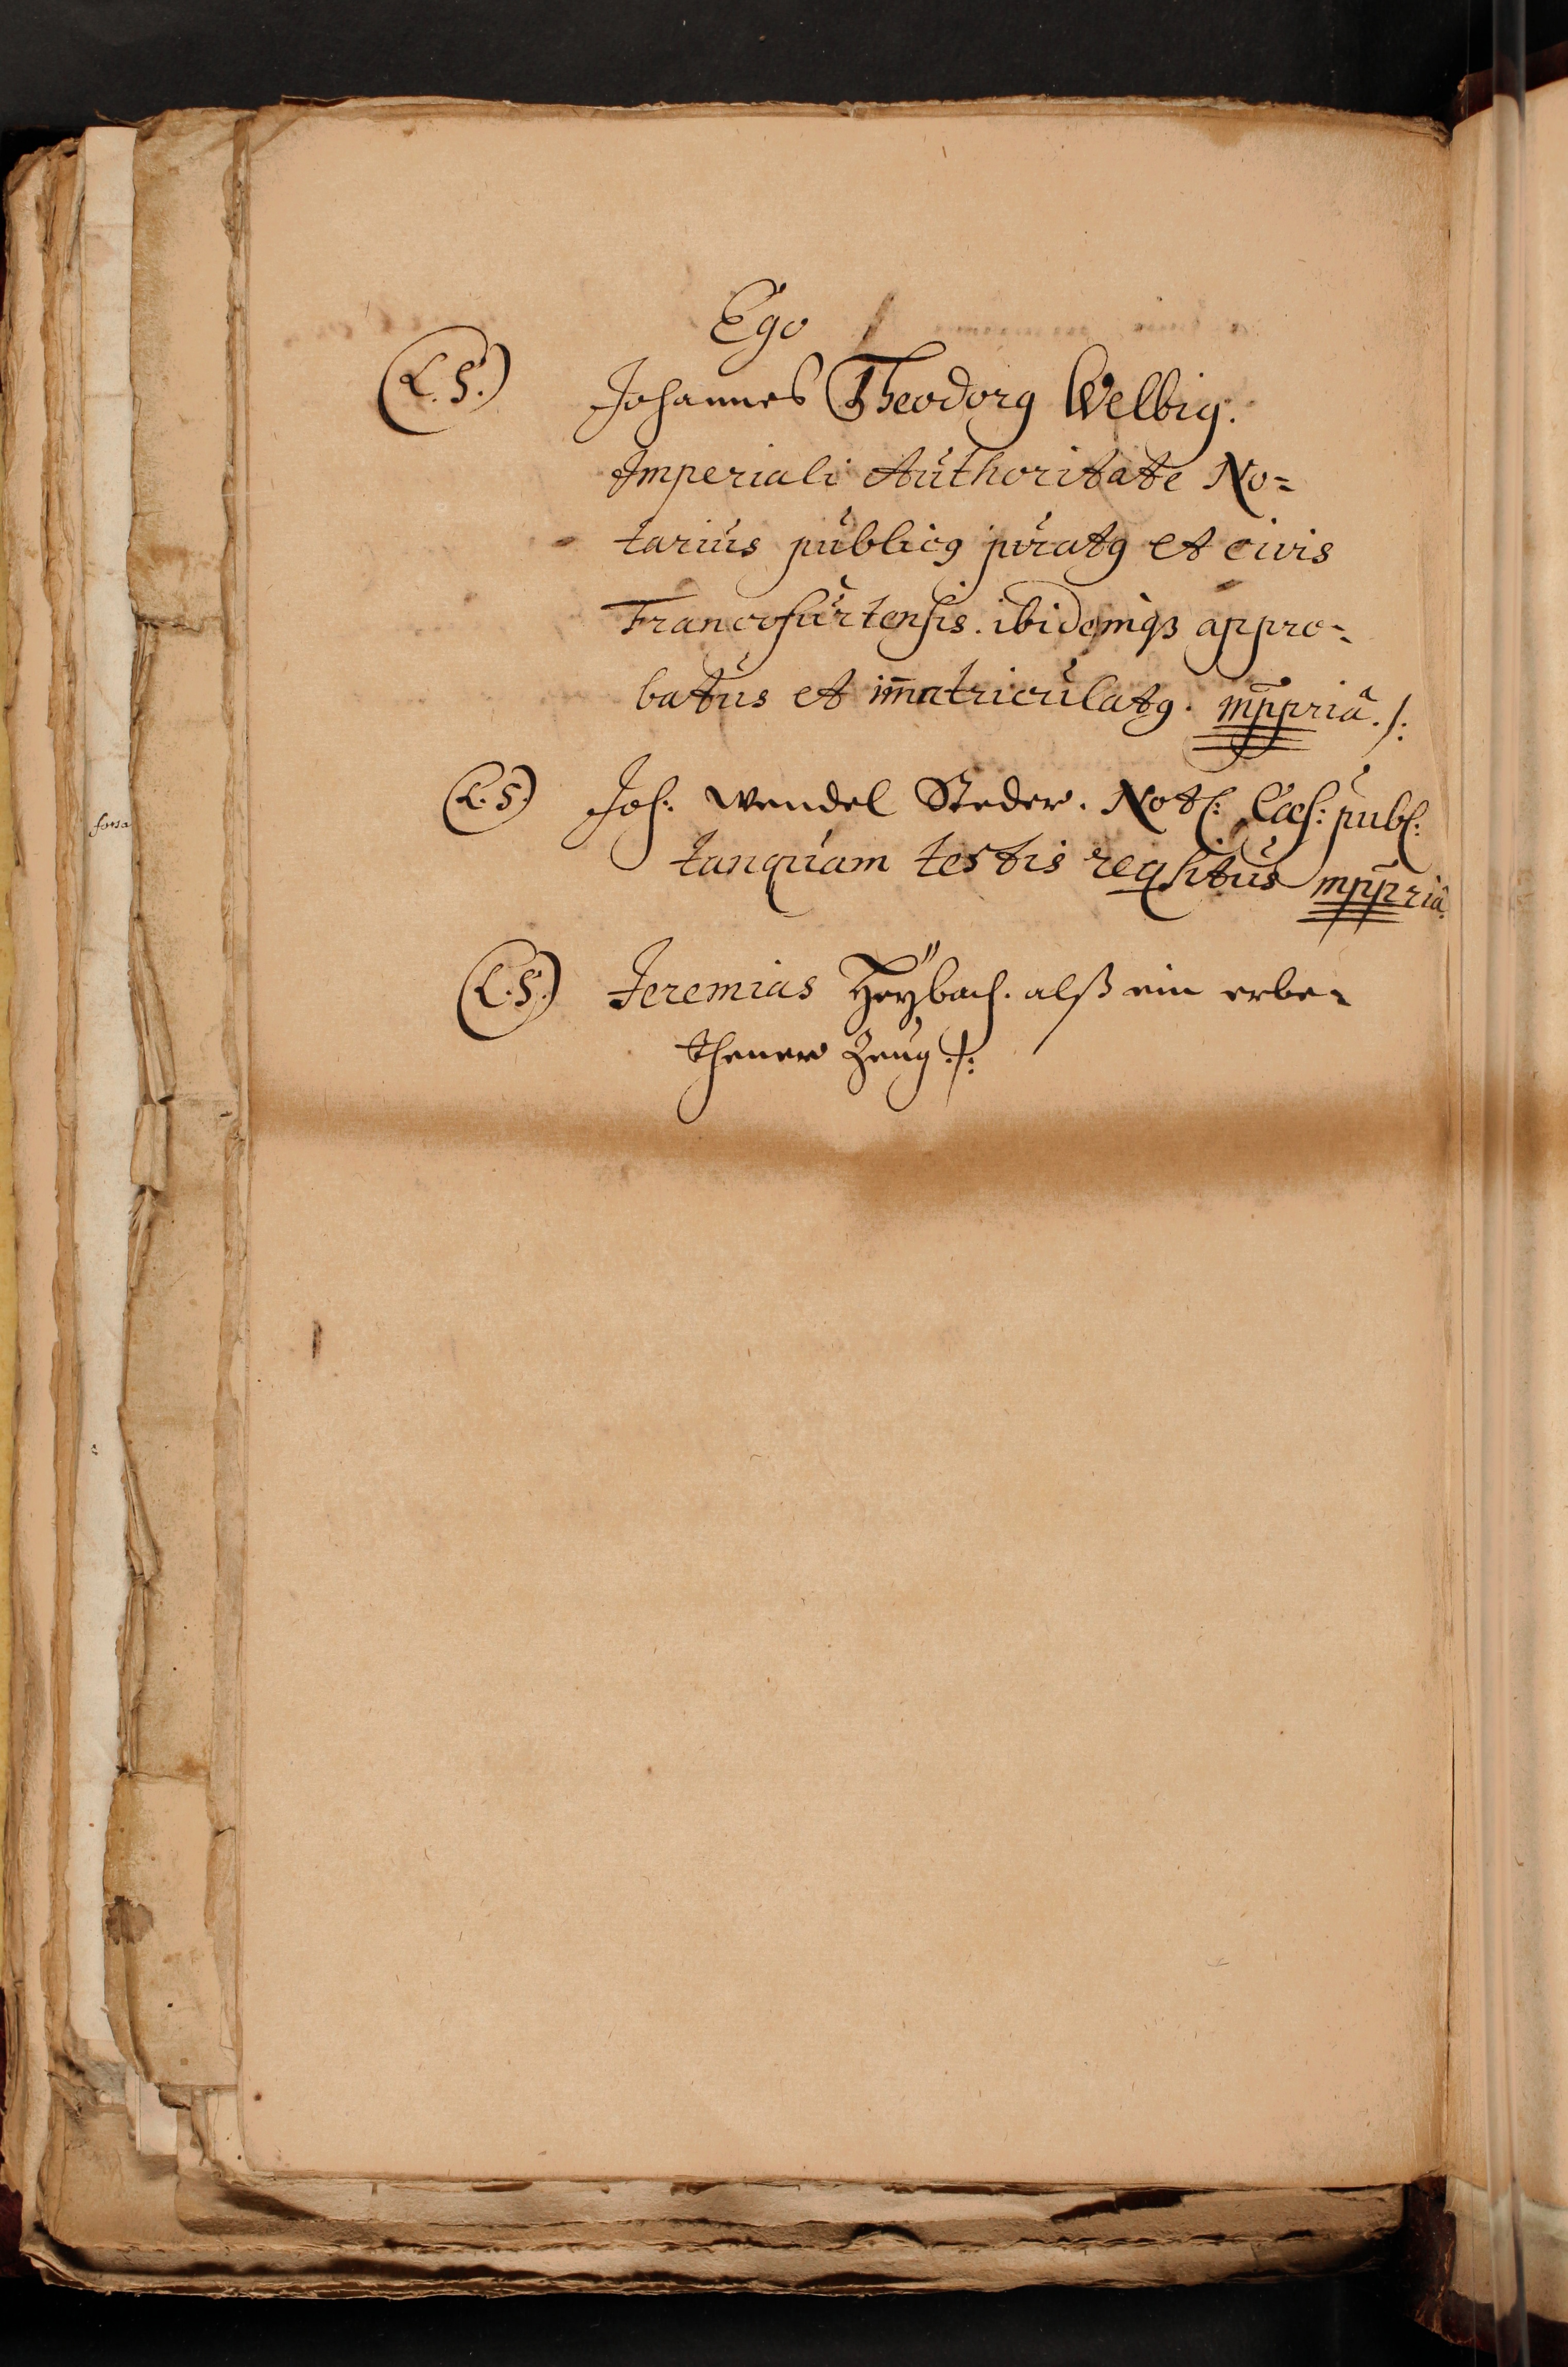 Ego
(L. S.) Johannes Theodorꝰ Welbig.
Imperiali Authoritate No=
tarius publicꝰ juratꝰ et civis
Francofurtensis. ibidemqꝫ appro=
batus et im̄atriculatꝰ. mp̄priâ. /:
(L. S.) Joh: Wendel Steder. Not: Cæs: publ:
tanquam testis reqsitus mp̄priâ.
(L. S.) Jeremias Heÿbach. alß ein erbe=
thener Zeug ./: